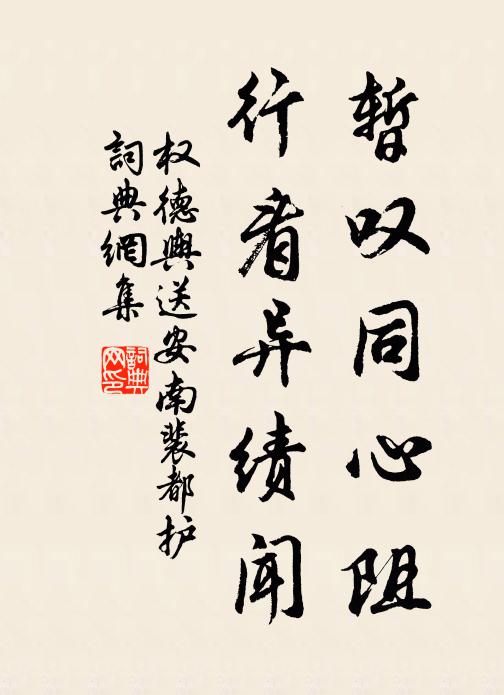 暂叹同心阻
行看异绩闻
权德輿送安南裴都护
詞典網集
詞典网印